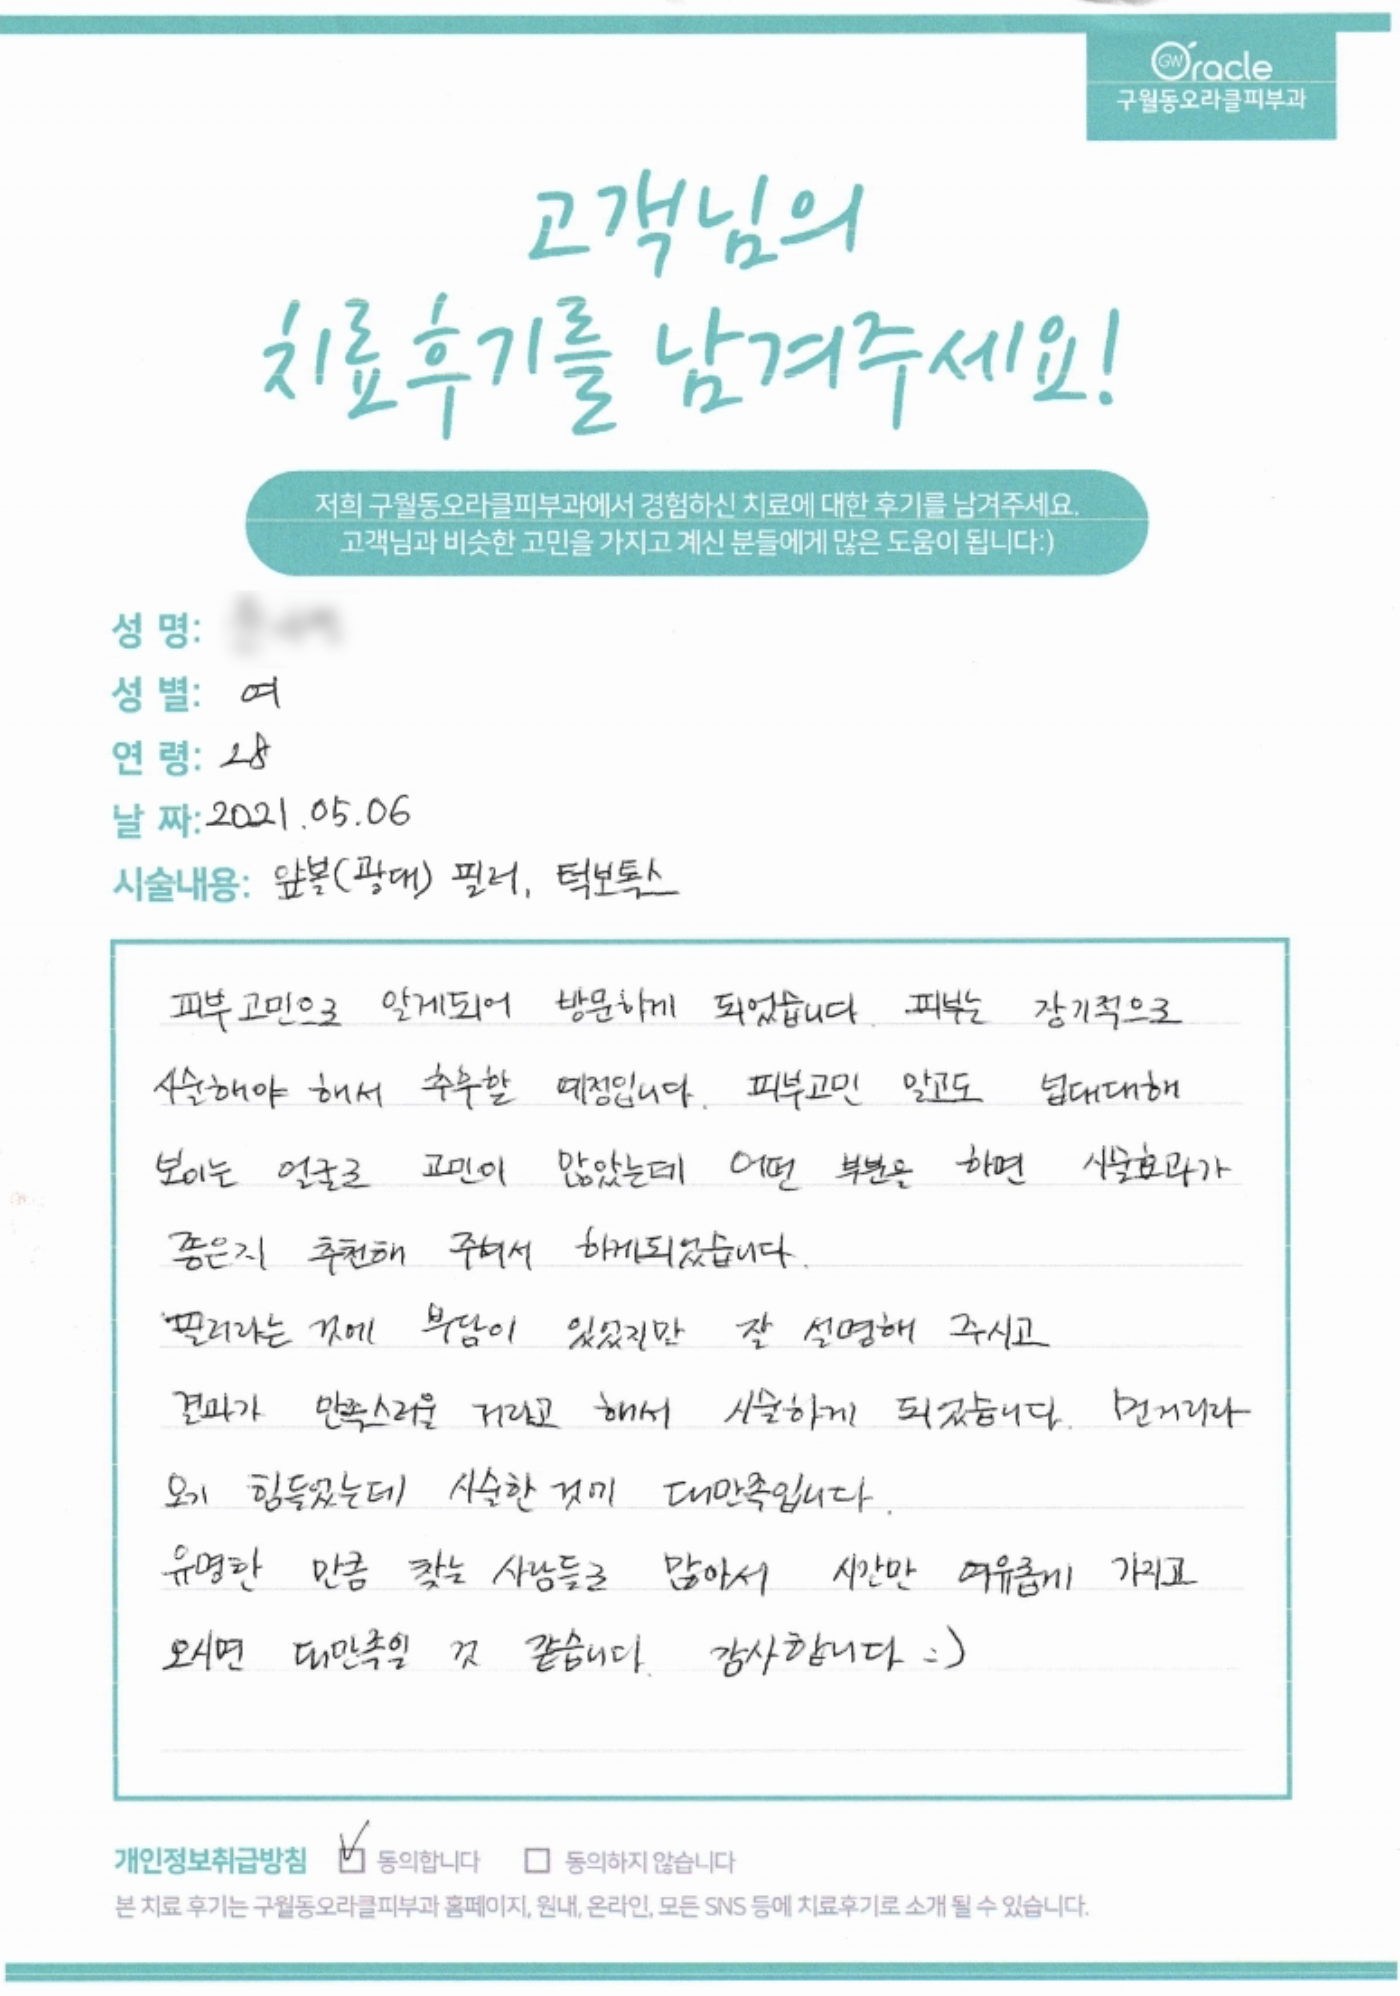 GW Oracle
구월동오라클피부과
고객님의
치료후기를 남겨주세요!
저희 구월동오라클피부과에서 경험하신 치료에 대한 후기를 남겨주세요.
고객님과 비슷한 고민을 가지고 계신 분들에게 많은 도움이 됩니다:)
성 명:
성 별: 여
연 령: 28
날 짜: 2021.05.06
시술내용: 앞볼(광대) 필러, 턱보톡스
피부고민으로 알게되어 방문하게 되었습니다. 피부는 장기적으로
시술해야 해서 추후할 예정입니다. 피부고민 말고도 넙대대해
보이는 얼굴로 고민이 많았는데 어떤 부분을 하면 시술효과가
좋은지 추천해 주셔서 하게되었습니다.
필러라는 것에 부담이 있었지만 잘 설명해 주시고
결과가 만족스러울 거라고 해서 시술하게 되었습니다. 먼거리라
오기 힘들었는데 시술한 것이 대만족입니다.
유명한 만큼 찾는 사람들도 많아서 시간만 여유롭게 가지고
오시면 대만족일 것 같습니다. 감사합니다 :)
개인정보취급방침 동의합니다 동의하지 않습니다
본 치료 후기는 구월동오라클피부과 홈페이지, 원내, 온라인, 모든 SNS 등에 치료후기로 소개 될 수 있습니다.